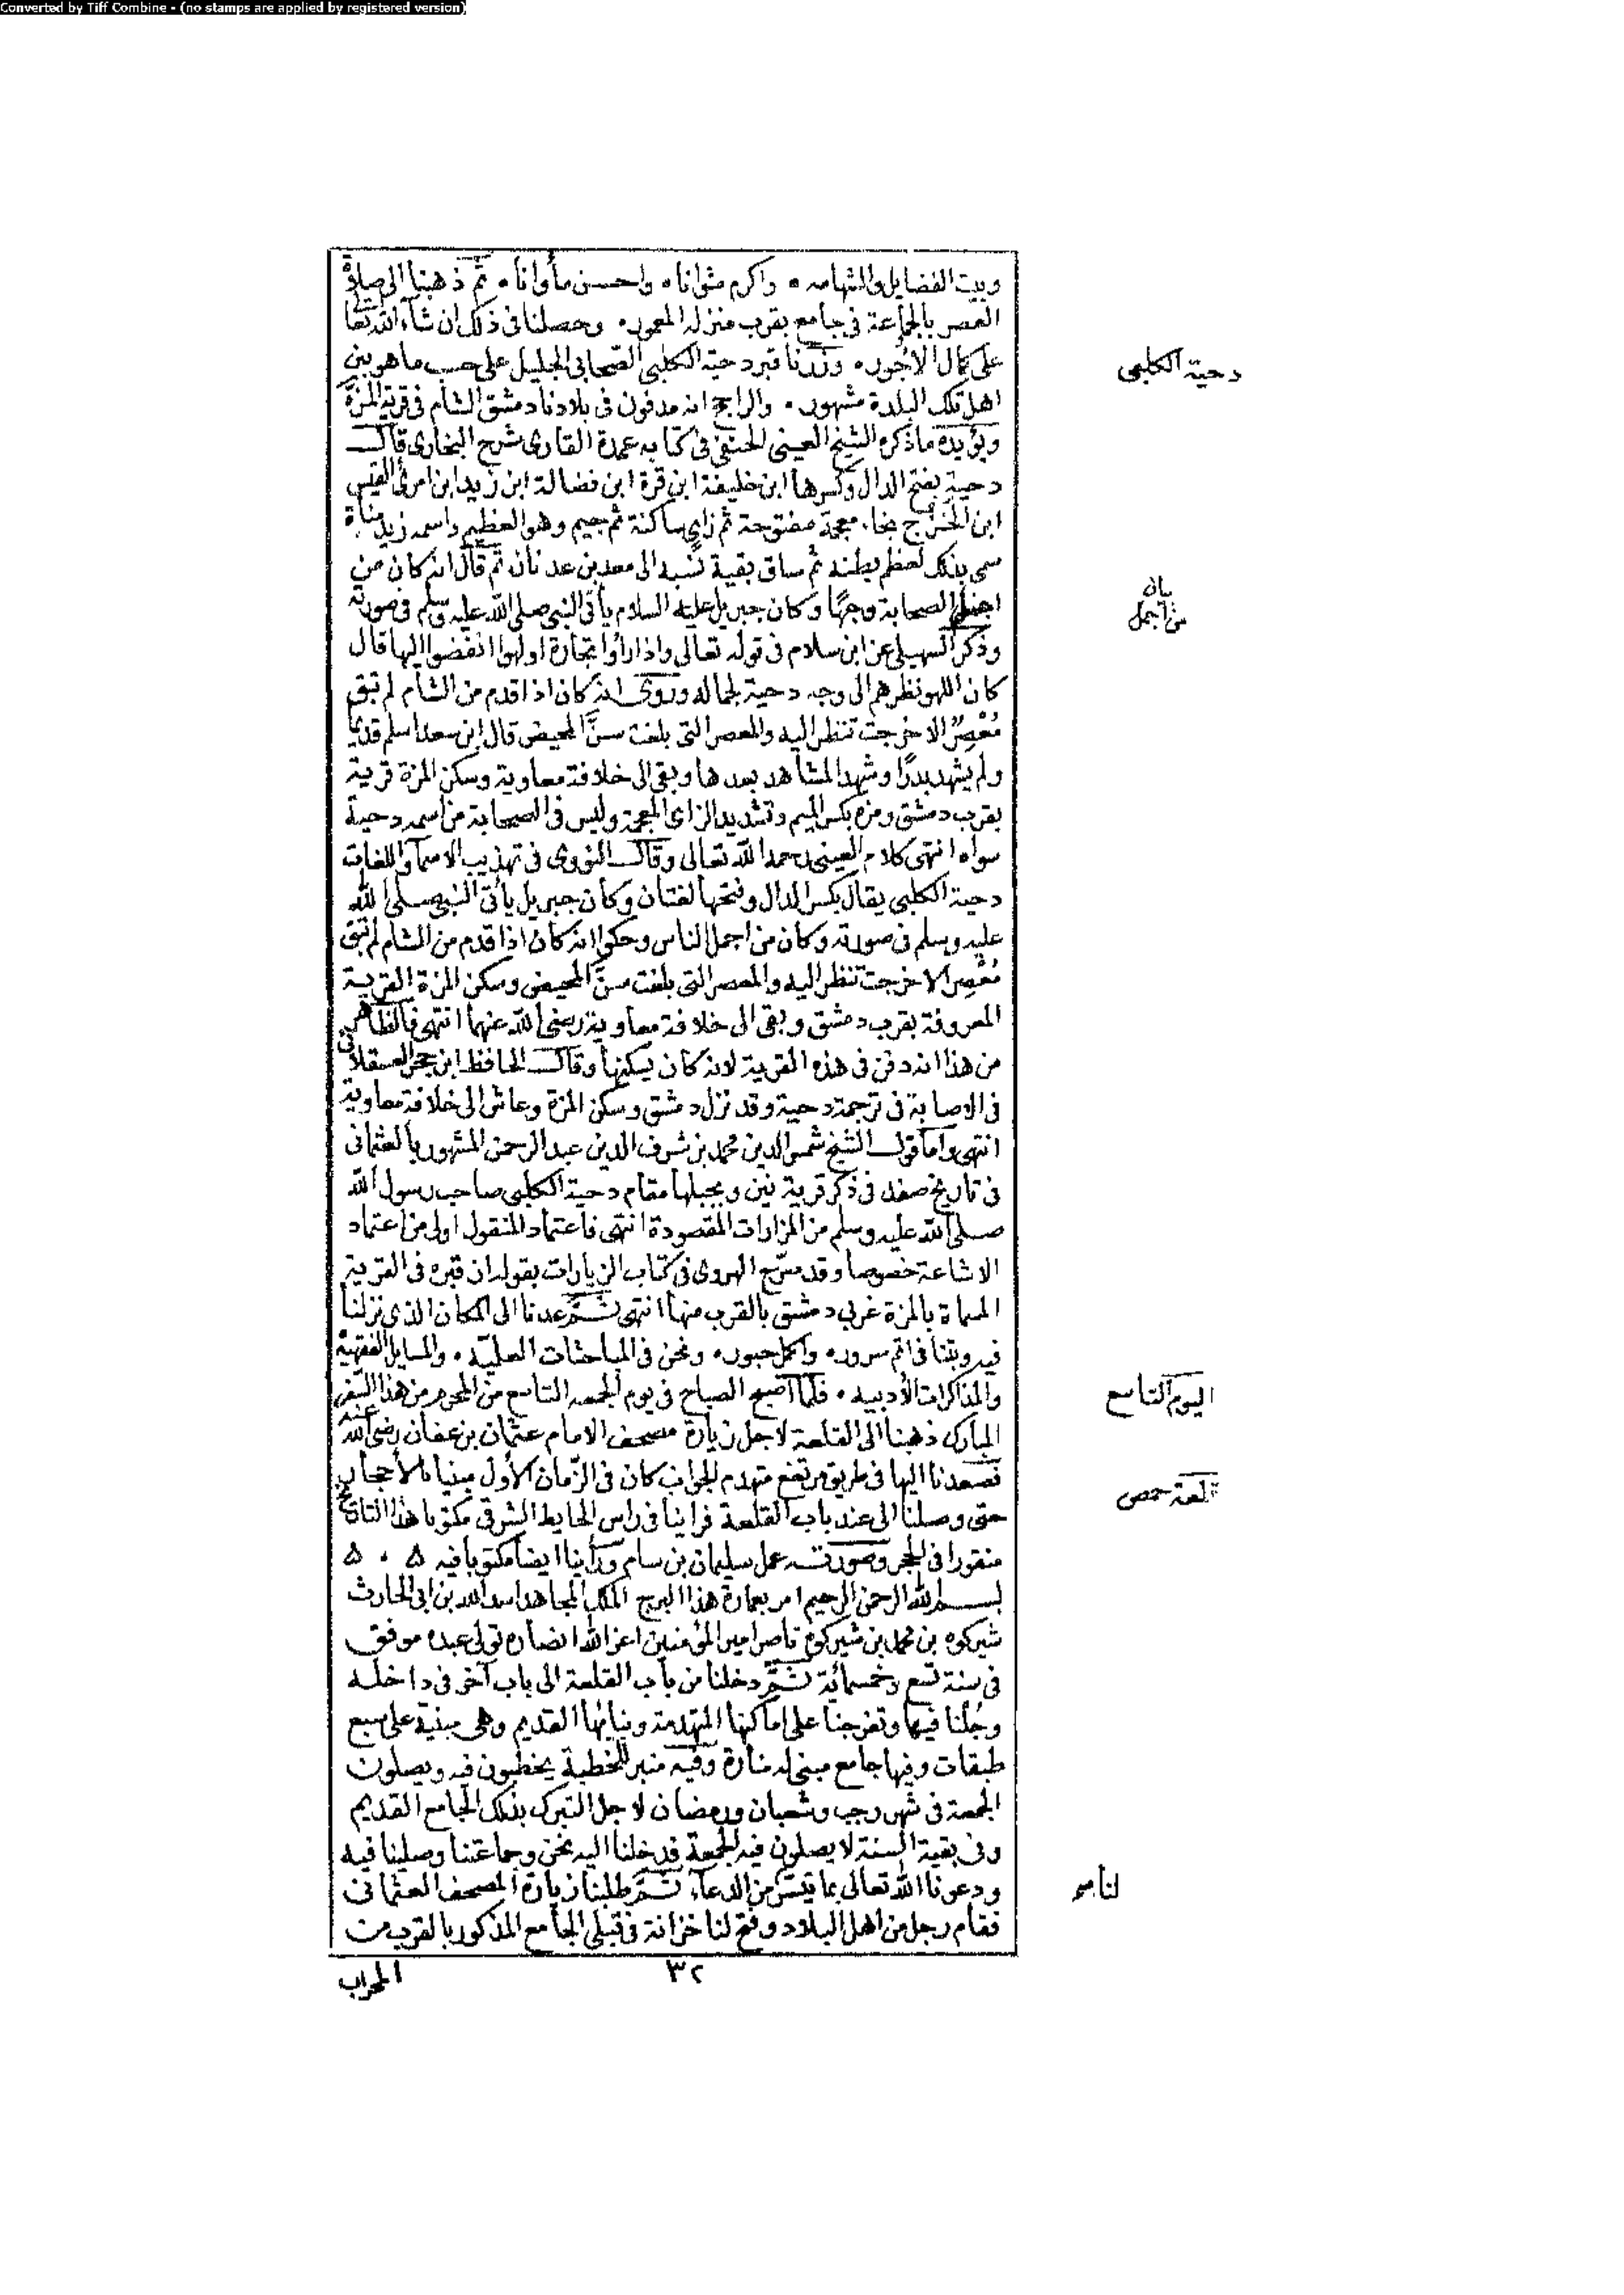 Converted by Tiff Combine - (no stamps are applied by registered version)
وبيت الفضايل والشهامه ۰ واكرم مثوانا ۰ واحسن مأوانا ۰ ثم ذهبنا الى صلاة
العصر بالجماعة فى جامع بقرب منزله المعمور ۰ وحصلنا فى ذلك ان شآء الله تعالى
على كمال الاجور ۰ وزرنا قبر دحية الكلبى الصحابى الجليل على حسب ما هو بين
دحية الكلبى
اهل تلك البلدة مشهور ۰ والراجح انه مدفون فى بلادنا دمشق الشام فى قرية المزة
ويؤيده ما ذكره الشيخ العينى الحنفى فى كتابه عمدة القارى شرح البخارى قال
دحية بفتح الدال وكسرها ابن خليفة ابن قرة ابن فضالة ابن زيد ابن امرئ القيس
ابن الخزرج بخاء معجمة مفتوحة ثم زاى ساكنة ثم جيم وهو العظيم واسمه زيد مناة
سمى بذلك لعظم بطنه ثم ساق بقية نسبه الى معد بن عدنان ثم قال انه كان من
بيان
من اجمل
اجمل الصحابة وجها وكان جبريل عليه السلام يأتى النبى صلى الله عليه وسلم فى صورته
وذكر السهيلى عن ابن سلام فى قوله تعالى واذا رأوا تجارة او لهوا انفضوا اليها قال
كان اللهو نظرهم الى وجه دحية لجماله وروى انه كان اذا قدم من الشأم لم تبق
مُعْصِرٌ الا خرجت تنظر اليه والمعصر التى بلغت سنَّ المحيض قال ابن سعد اسلم قديما
ولم يشهد بدرًا وشهد المشاهد بعدها وبقى الى خلافة معاوية وسكن المزة قرية
بقرب دمشق ومزه بكسر الميم وتشديد الزاى المعجمة وليس فى الصحابة من اسمه دحية
سواه انتهى كلام العينى رحمه الله تعالى وقال النووى فى تهذيب الاسمآ واللغات
دحية الكلبى يقال بكسر الدال وفتحها لغتان وكان جبريل يأتى النبى صلى الله
عليه وسلم فى صورته وكان من اجمل الناس وحكوا انه كان اذا قدم من الشام لم تبق
مُعْصِر الا خرجت تنظر اليه والمعصر التى بلغت سنَّ المحيض وسكن المزة القرية
المعروفة بقرب دمشق وبقى الى خلافة معاوية رضى الله عنهما انتهى فالظاهر
من هذا انه دفن فى هذه القرية لانه كان يسكنها وقال الحافظ ابن حجر العسقلانى
فى الاصابة فى ترجمة دحية وقد نزل دمشق وسكن المزة وعاش الى خلافة معاوية
انتهى واما قول الشيخ شمس الدين محمد بن شرف الدين عبد الرحمن المشهور بالعثمانى
فى تاريخ صفد فى ذكر قرية نين وبجبلها مقام دحية الكلبى صاحب رسول الله
صلى الله عليه وسلم من المزارات المقصودة انتهى فاعتماد المنقول اولى من اعتماد
الاشاعة خصوصا وقد صرّح الهروى فى كتاب الزيارات بقوله ان قبره فى القرية
المسماة بالمزة غربى دمشق بالقرب منها انتهى ثم عدنا الى المكان الذى نزلنا
فيه وبتنا فى اتم سرور ۰ واكمل حبور ۰ ونحن فى المباحثات العلميّة ۰ والمسايل الفقهية
والمذاكرات الأدبيه ۰ فلمّا اصبح الصباح فى يوم الجمعه التاسع من المحرم من هذا السّفر
اليوم التاسع
المبارك ذهبنا الى القلعة لاجل زيارة مصحف الامام عثمان بن عفان رضى الله عنه
فصعدنا اليها فى طريق مرتفع متهدم الجوانب كان فى الزّمان الأول مبنيا بالأحجار
قلعة حمص
حتى وصلنا الى عند باب القلعة فراينا فى راس الحايط الشرقى مكتوبا هذا التاريخ
منقورا فى الحجر وصورته عمل سليمان بن سام ورأينا ايضا مكتوبا فيه ۵ ۰ ۵
بسم الله الرحمن الرحيم امر بعمارة هذا البرج الملك المجاهد اسد الله بن ابى الحارث
شيركوه بن محمد بن شيركوه ناصر امير المؤمنين اعز الله انصاره تولى عبده موفق
فى سنة تسع وخمسمائة ثم دخلنا من باب القلعة الى باب آخر فى داخله
وجُلْنا فيها وتفرجنا على اماكنها المتهدمة وبنائها القديم وهى مبنية على سبع
طبقات وفيها جامع مبنى له منارة وفيه منبر للخطبة يخطبون فيه ويصلون
الجمعة فى شهر رجب وشعبان ورمضان لاجل التبرك بذلك الجامع القديم
وفى بقية السنة لا يصلون فيه الجمعة فدخلنا اليه نحن وجماعتنا وصلينا فيه
ودعونا الله تعالى بما تيسر من الدعآء ثم طلبنا زيارة المصحف العثمانى
فقام رجل من اهل البلاد وفتح لنا خزانة فى قبلى الجامع المذكور بالقرب من
٣٢
المحراب